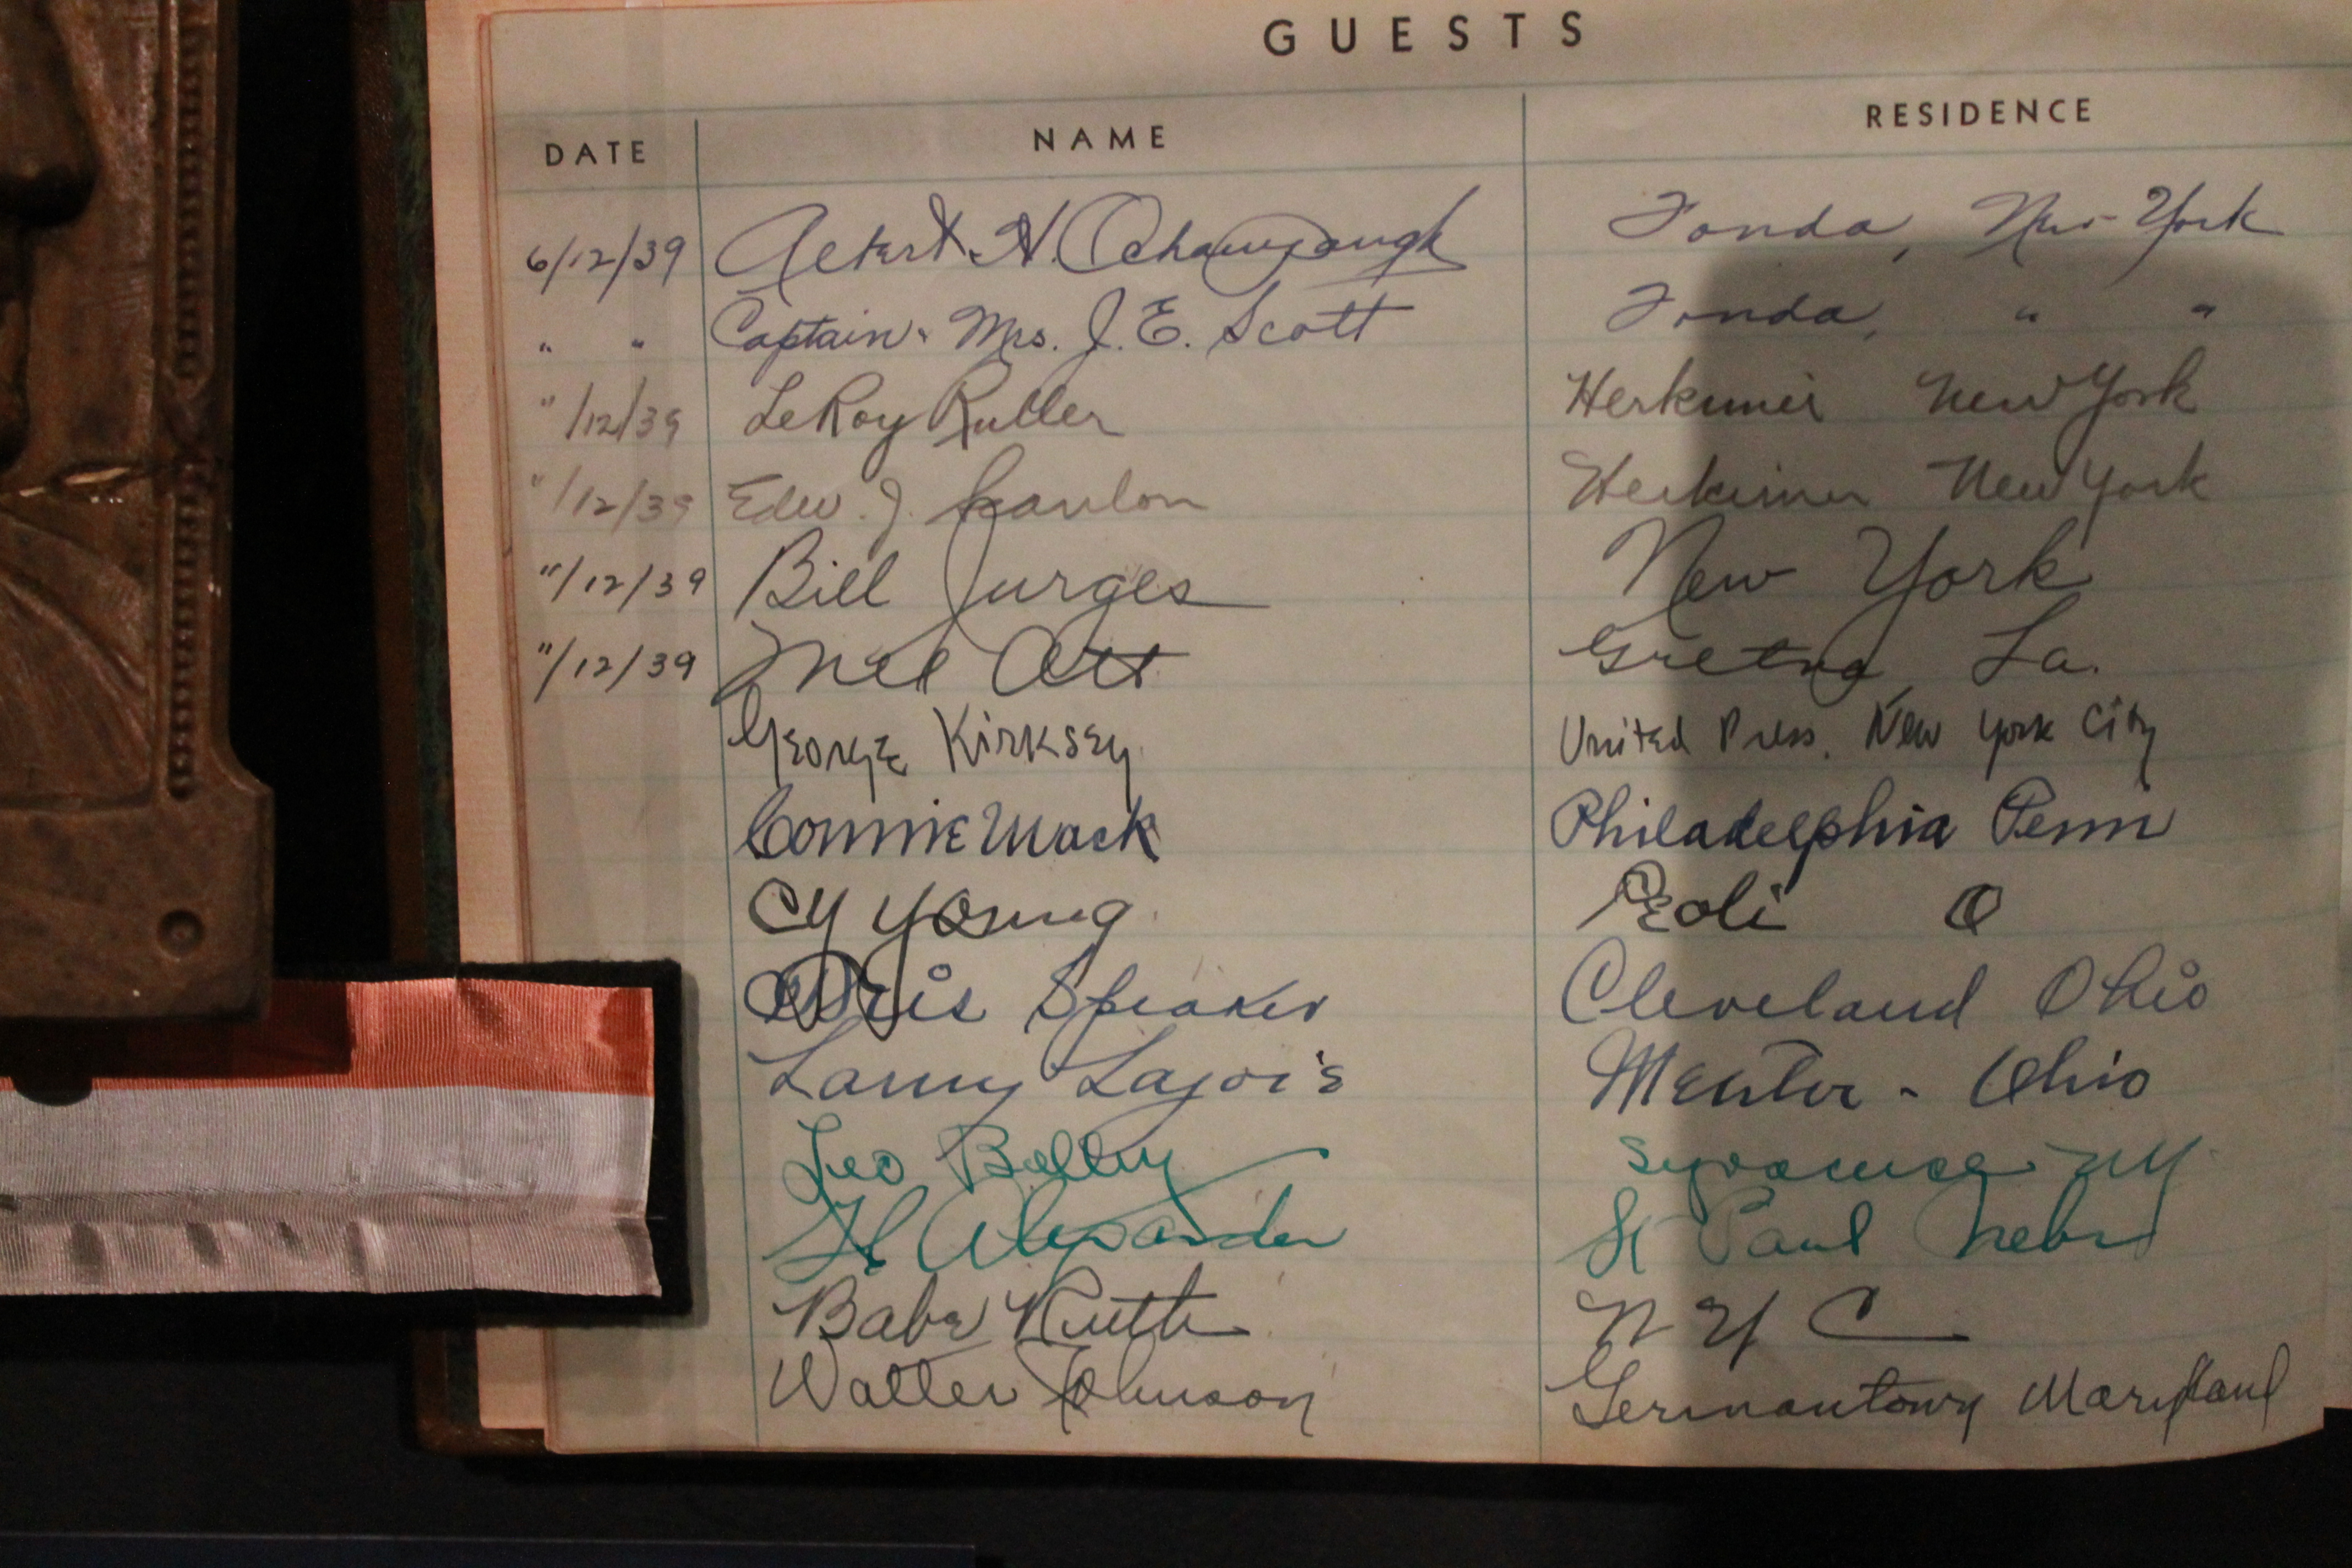 GUESTS
DATE NAME RESIDENCE
6/12/39 H. Fonda, New York
" " Captain & Mrs. J. E. Scott Fonda, " "
"/12/39 LeRoy Herkimer New York
"/12/39 Edw. J. Scanlon Herkimer New York
"/12/39 Bill Jurges New York
"/12/39 Mel Ott Gretna La.
George Kirksey United Press, New York City
Connie Mack Philadelphia Penn
Cy Young Peoli O
Tris Speaker Cleveland Ohio
Larry Lajoie Mentor - Ohio
Leo Bolley Syracuse NY
G C Alexander St Paul Nebr
Babe Ruth N Y C
Walter Johnson Germantown Maryland